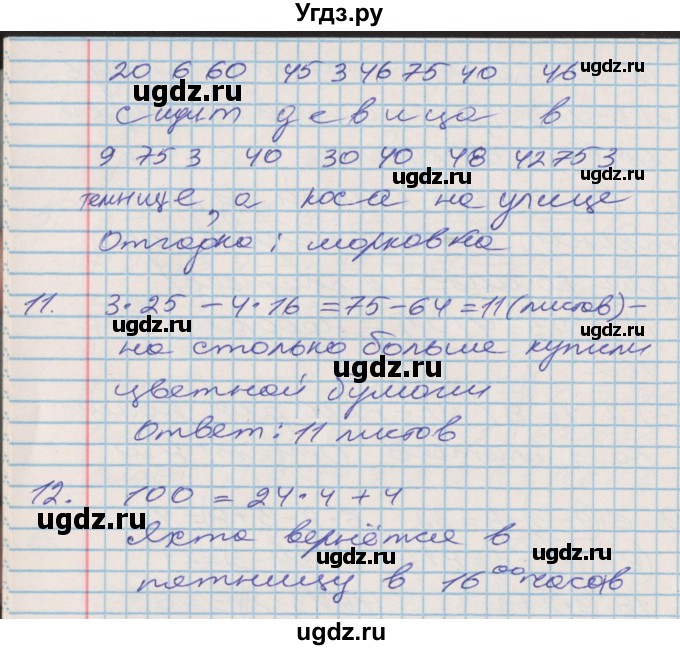 Угдз.ру
20 6 60 45 3 46 75 40 46
ugdz.ru
ugdz.ru
сидит девица в
9 75 3 40 30 40 48 42 75 3
ugdz.ru
ugdz.ru
темнице, а коса на улице
Отгадка: морковка
11. 3·25 – 4·16 = 75 – 64 = 11 (листов) –
ugdz.ru
ugdz.ru
на столько больше купили
ugdz.ru
цветной бумаги
Ответ: 11 листов
12. 100 = 24·4 + 4
ugdz.ru
Яхта вернётся в
ugdz.ru
ugdz.ru
пятницу в 16⁰⁰ часов
ugdz.ru
ugdz.ru
ugdz.ru